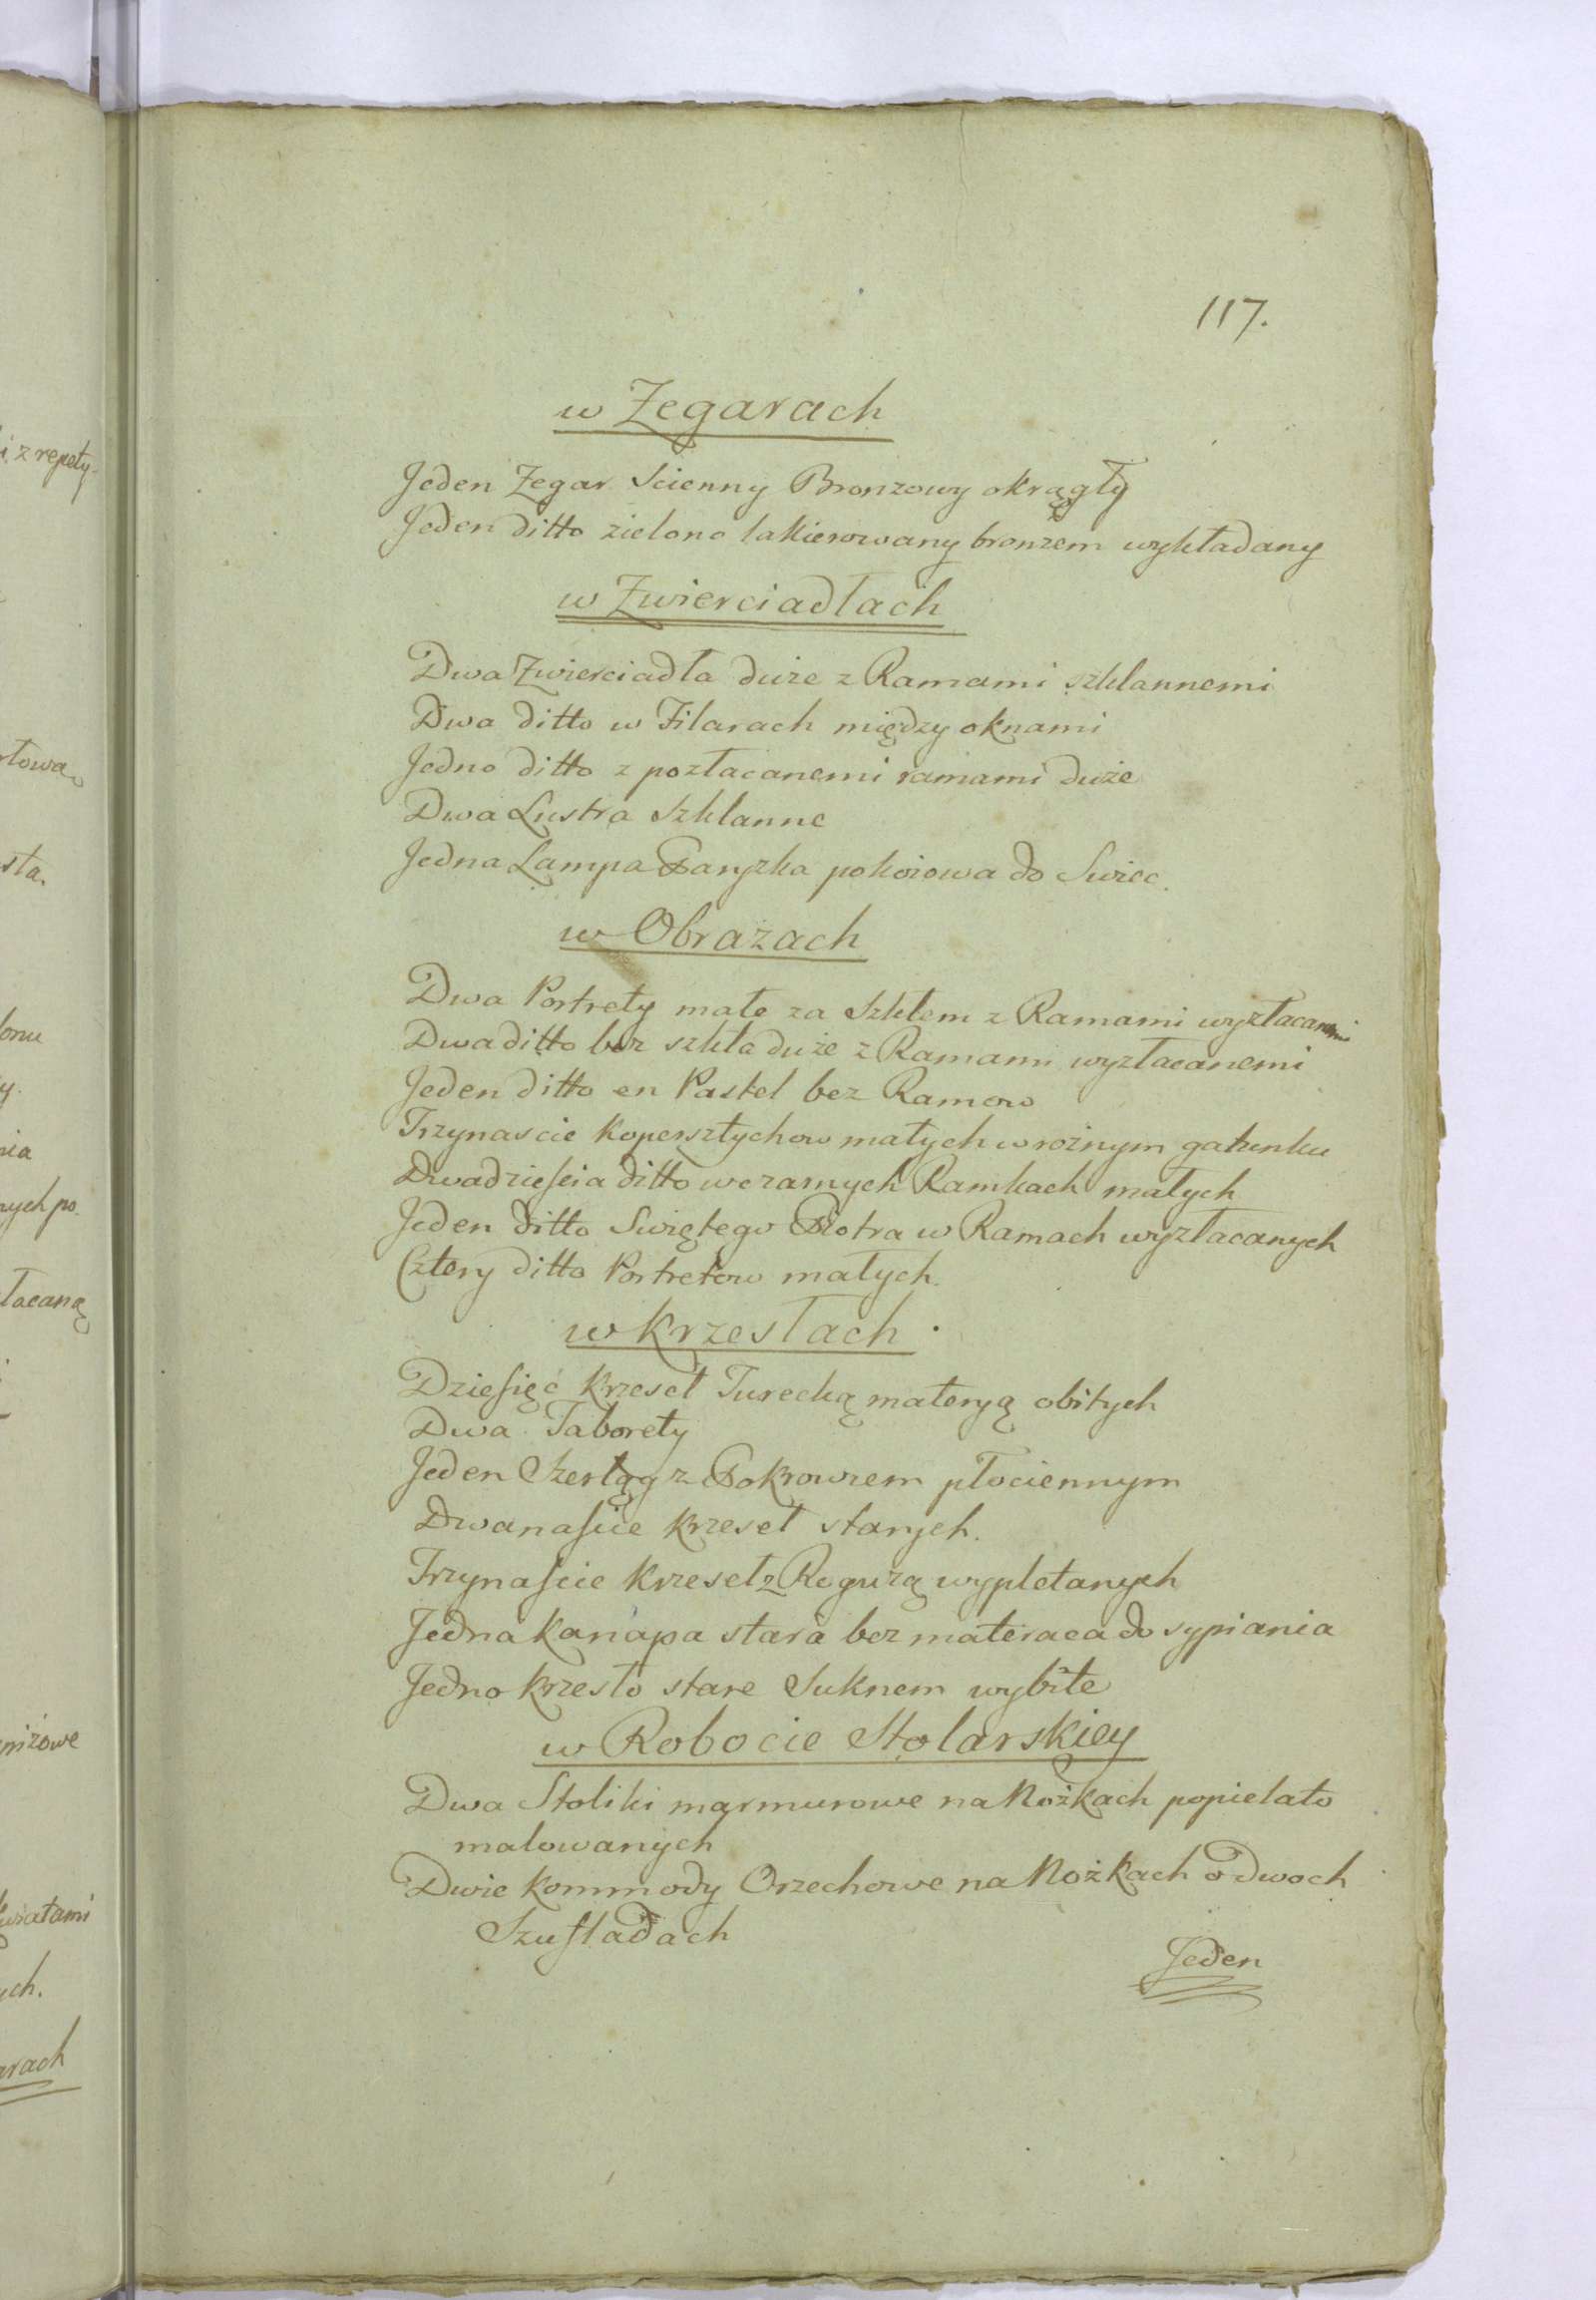 i z repety-
sta.
nych po
łacaną
kwiatami
ych.
arach
117.
w Zegarach
Jeden Zegar Scienny Bronzowy okrągły
Jeden ditto zielono lakierowany bronzem wykładany
w Zwierciadłach
Dwa Zwierciadła duże z Ramami szklannemi
Dwa ditto w Filarach między oknami
Jedno ditto z pozłacanemi ramami duże
Dwa Lustra Szklanne
Jedna Lampa Paryzka pokoiowa do Swiec.
w Obrazach
Dwa Portrety małe za Szkłem z Ramami wyzłacanemi
Dwa ditto bez szkła duże z Ramami wyzłacanemi
Jeden ditto en Pastel bez Ramow
Trzynascie Kopersztychow małych w rożnym gatunku
Dwadzieścia ditto w czarnych Ramkach małych
Jeden ditto Swiętego Piotra w Ramach wyzłacanych
Cztery ditto Portretow małych.
w Krzesłach.
Dziesięć Krzeseł Turecką materyą obitych
Dwa Taborety
Jeden Szezląg z Pokrowzem płociennym
Dwanaście Krzeseł starych.
Trzynaście Krzeseł z Rogużą wypletanych
Jedna Kanapa stara bez materaca do sypiania
Jedno Krzesło stare Suknem wybite
w Robocie Stolarskiey
Dwa Stoliki marmurowe na Nożkach popielato
malowanych
Dwie Kommody Orzechowe na Nożkach o dwoch
Szufladach
Jeden